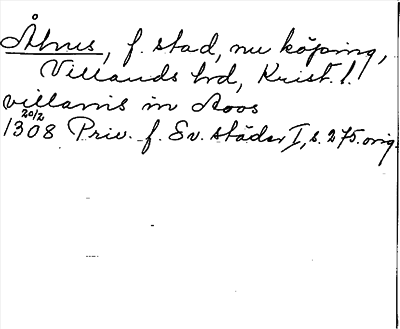 Åhus, f. stad, nu köping,
Villands hd, Krist. l.
villanis in Aoos
20/2
1308 Priv. f. Sv. städer I, s. 275. orig.